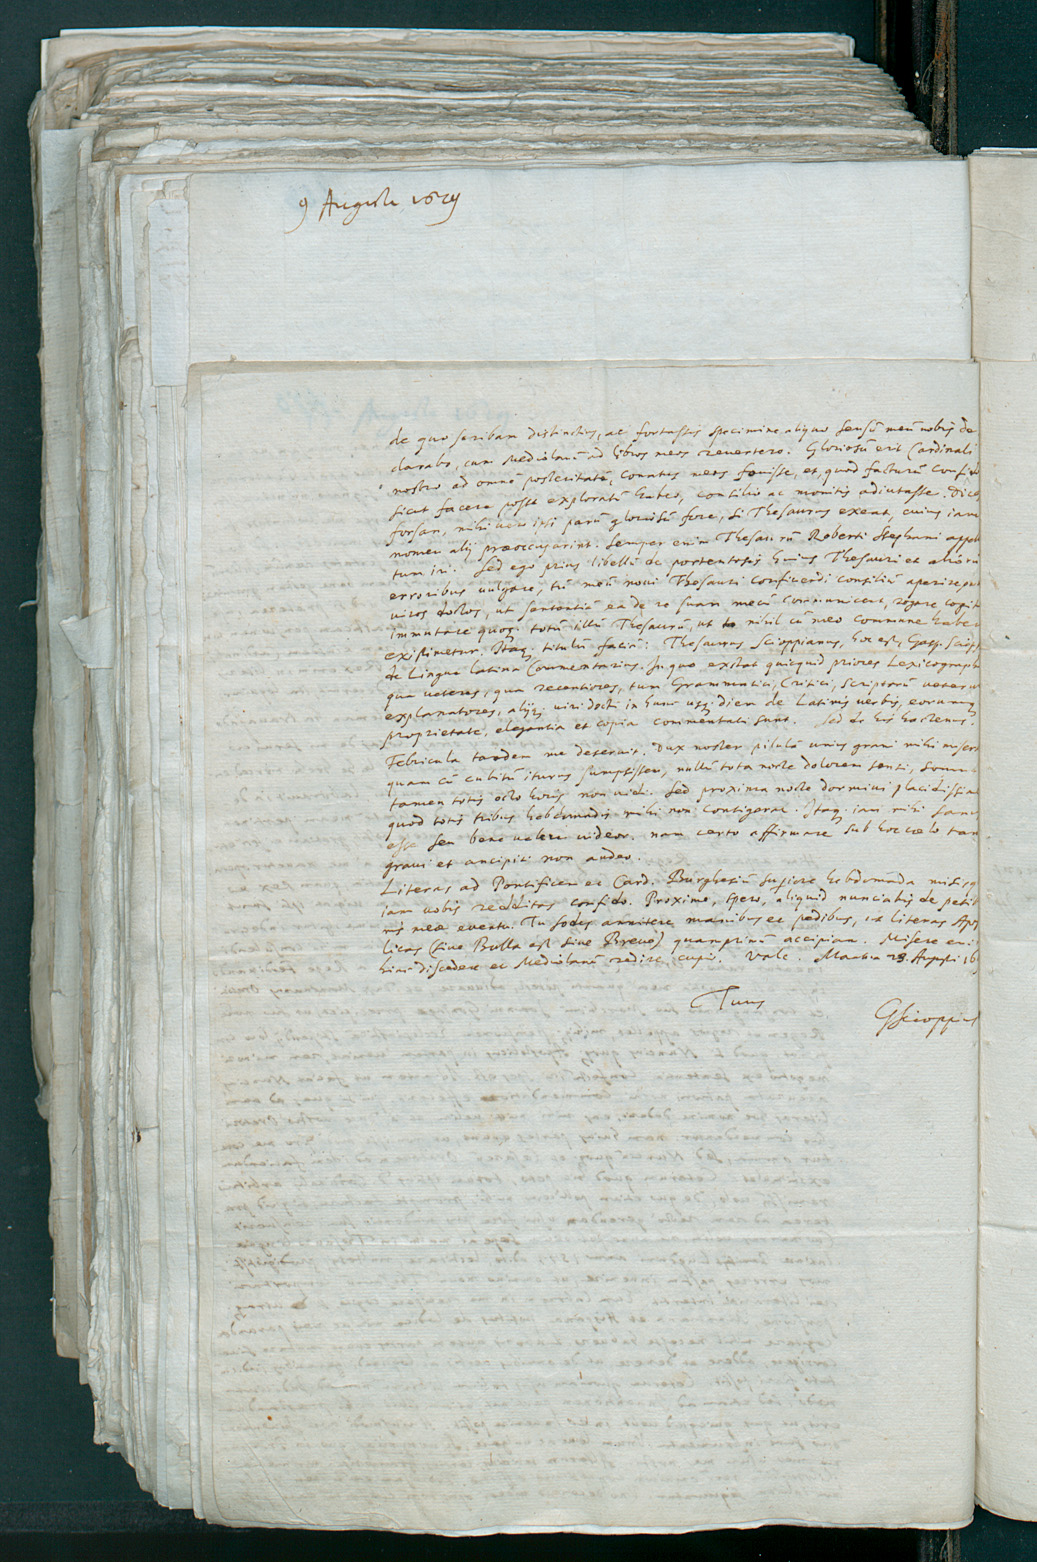 9 Augusti 1629
de quo scribam distinctius, ac fortassis specimine aliquo sensũ meũ vobis de
clarabo, cum Mediolanũ ad libros meos revertero. Gloriosũ erit Cardinali
nostro ad omnẽ posteritatẽ, conatus meos fovisse, et, quod facturũ confid
sicut facere posse exploratũ habeo, consilio ac monitis adiutasse. Dices
forsan, mihi vero ipsi parũ gloriosũ fore, si Thesaurus exeat, cuius iam
nomen alij præoccuparint. Semper enim Thesaurũ Roberti Stephani appel
tum iri. Sed ego prius libellũ de portentosis huius Thesauri et aliorũ
erroribus vulgare, tũ meũ novi Thesauri conficiendi consiliũ aperire, 
viros doctos, ut sententiã ea de re suam mecũ communicent, rogare, cogit
immutare quoq; totũ illũ Thesaurũ, ut nihil cũ meo commune habe
existimetur. Itaq; titulũ faciã: Thesaurus Scioppianus, hoc est, Gasp. Sciopp
de Lingua latina Commentarius. In quo exstat quicquid priores Lexicograph
qua veteres, qua recentiores, tum Grammatici, Critici, Scriptorũ veterum
explanatores, alijq; viri docti in hunc usq; diem de Latinis verbis, eorumq;
proprietate, elegantia et copia commentati sunt. Sed de his hactenus.
Febricula tandem me deseruit. Dux noster pilulã unius grani mihi misera
quam cũ cubitũ iturus sumpsissem, nullũ tota nocte dolorem sensi, somn
tamen totis octo horis non vidi. Sed proxima nocte dormivi placidissim
quod totis tribus hebdomadis mihi non contigerat. Itaq; iam mihi sanus
esse seu bene valere videor. nam certo affirmare sub hoc cælo tam
gravi et ancipiti non audeo.
Literas ad Pontificem et Card. Burghesiũ superiore hebdomada misi, q
iam vobis redditas confido. Proxime, spero, aliquid nunciabis de petit
nis meæ eventu. Tu sodes annitere manibus et pedibus, ut literas Apo
licas (sive Bulla est sive Breve) quamprimũ accipiam. Misere eni
hinc discedere et Mediolanũ redire cupio. Vale. Mantua 23. Augusti 16
Tuus
GScioppius